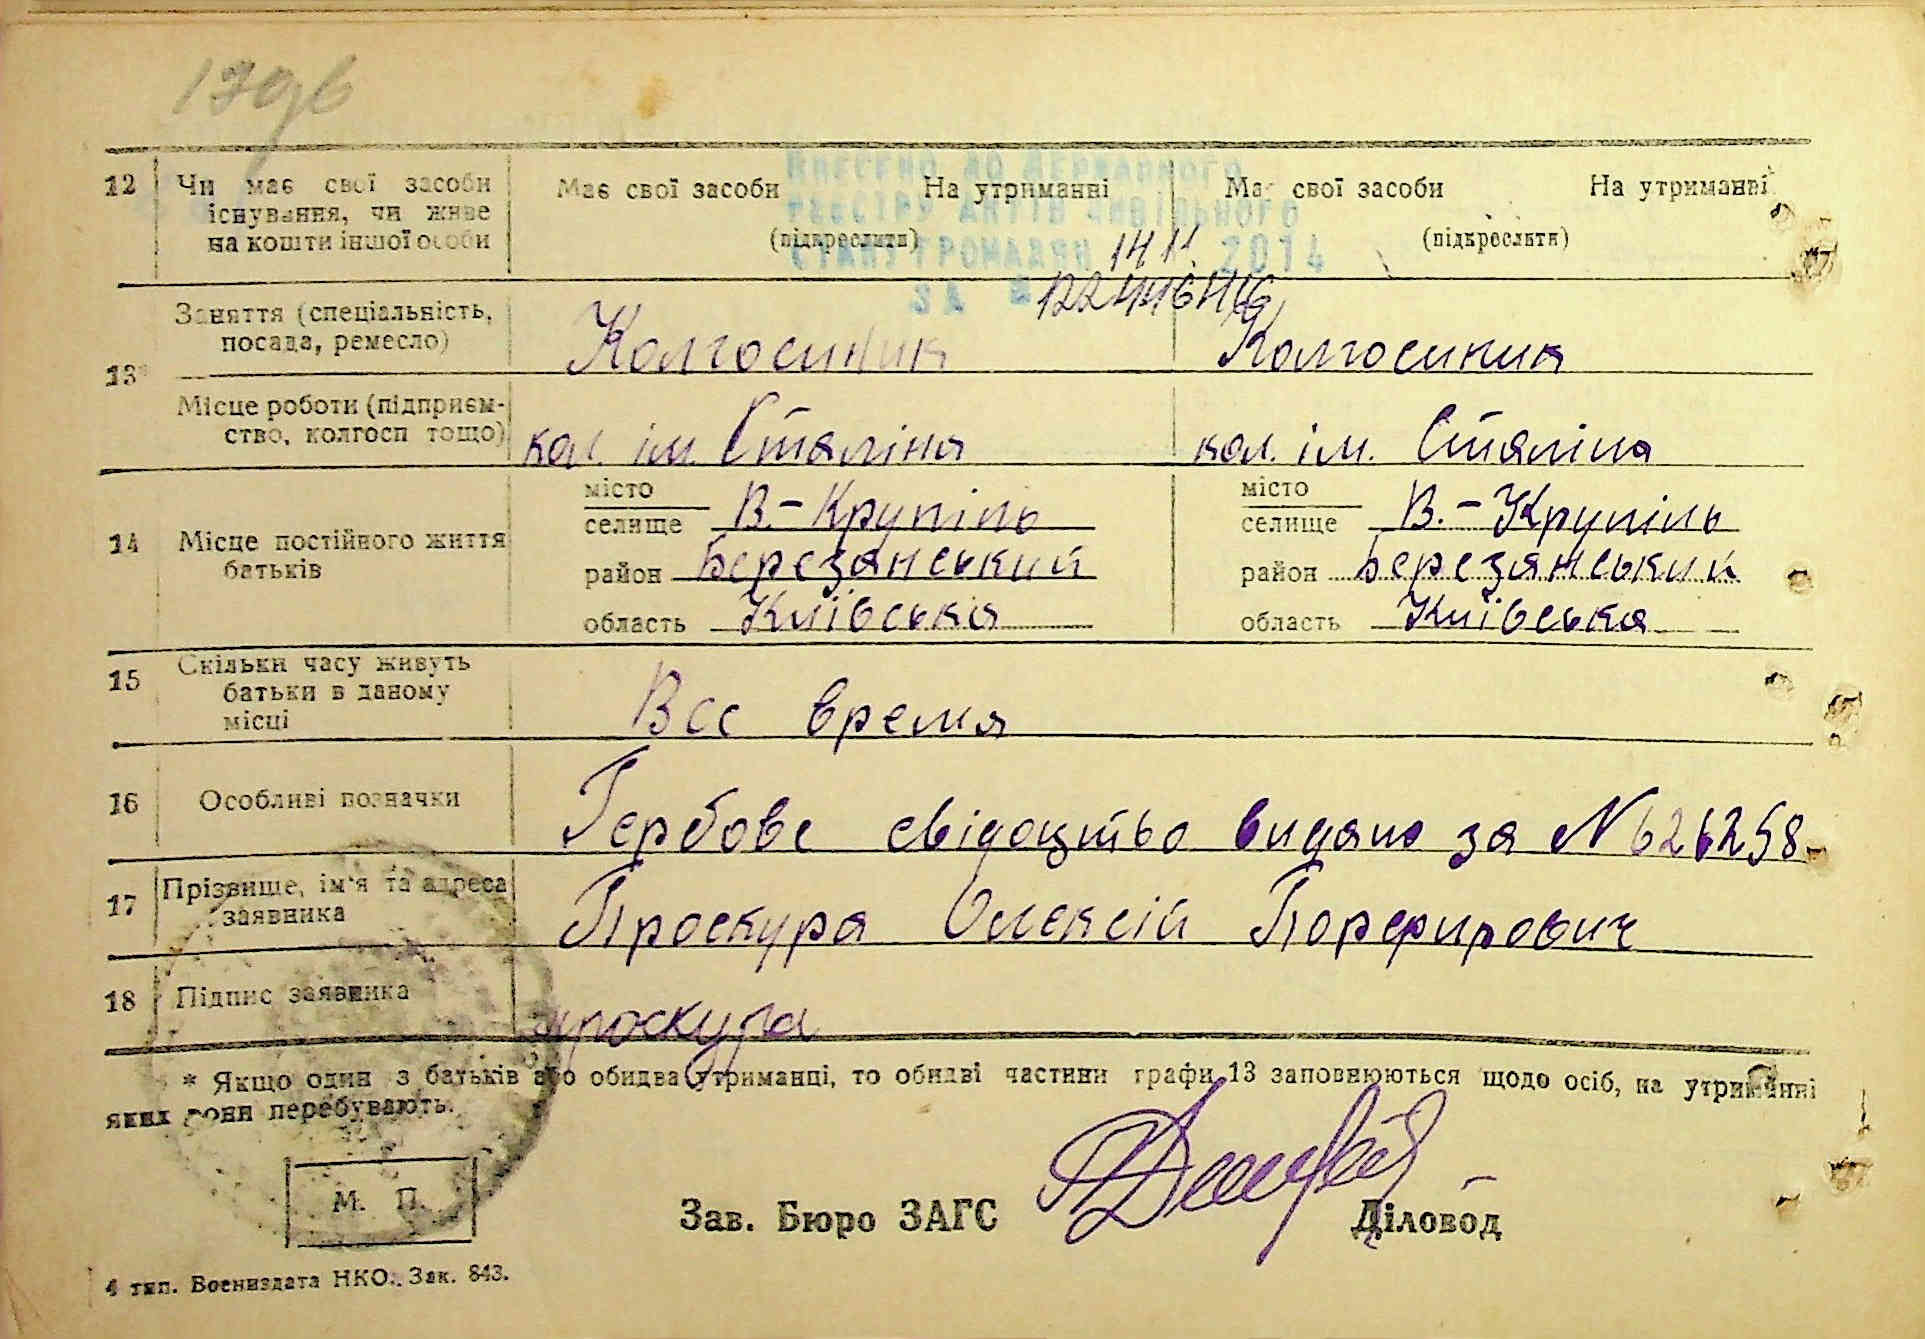 12 Чи має свої засоби існування, чи живе на кошти іншої особи
Має свої засоби На утриманні
(підкреслити)
Має свої засоби На утриманні
(підкреслити)
Внесено до Державного
реєстру актів цивільного
стану громадян 14 11 2014
за №
13* Заняття (спеціальність, посада, ремесло)
Колгоспник Колгоспник
Місце роботи (підприєм-
ство, колгосп тощо)
кол. ім. Сталіна кол. ім. Сталіна
14 Місце постійного життя батьків
місто
селище В.-Крупіль
район Березанський
область Київська
місто
селище В.-Крупіль
район Березанський
область Київська
15 Скільки часу живуть батьки в даному місці
Все время
16 Особливі позначки
Гербове свідоцтво видано за № 626258
17 Прізвище, ім'я та адреса заявника
Проскура Олексій Порфирович
18 Підпис заявника
Проскура
* Якщо один з батьків або обидва утриманці, то обидві частини графи 13 заповнюються щодо осіб, на утриманні
яких вони перебувають.
М. П.
Зав. Бюро ЗАГС
Діловод
4 тип. Воениздата НКО. Зак. 843.